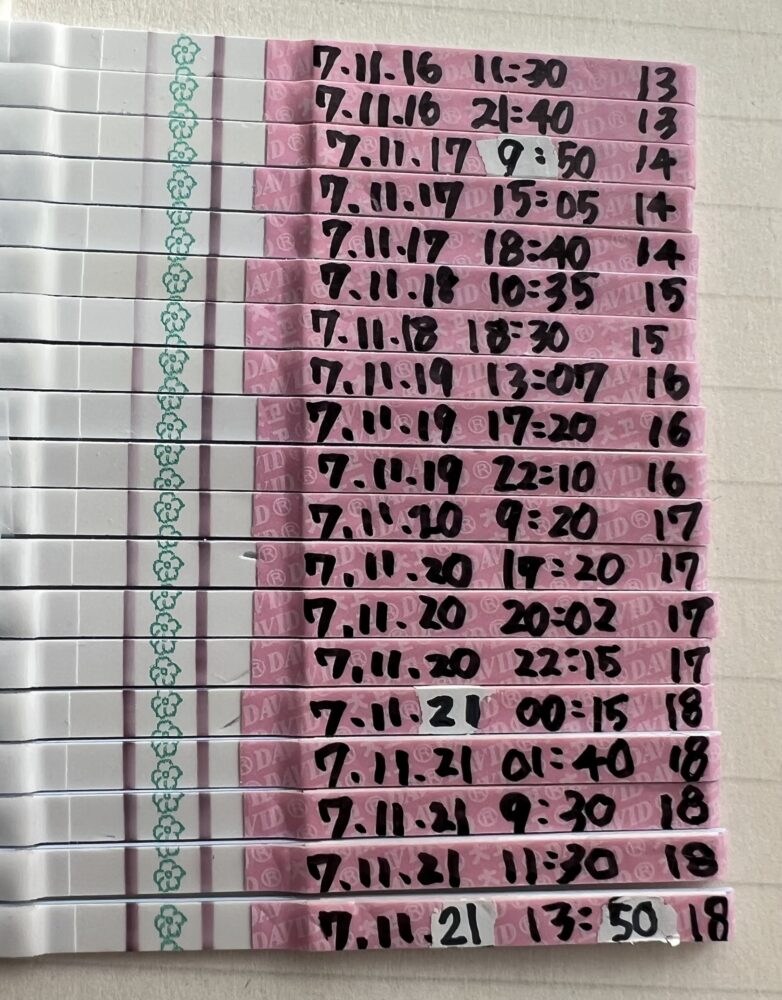 7.11.16 11:30 13
7.11.16 21:40 13
7.11.17 9:50 14
7.11.17 15:05 14
7.11.17 18:40 14
7.11.18 10:35 15
7.11.18 18:30 15
7.11.19 13:07 16
7.11.19 17:20 16
7.11.19 22:10 16
7.11.20 9:20 17
7.11.20 19:20 17
7.11.20 20:02 17
7.11.20 22:15 17
7.11.21 00:15 18
7.11.21 01:40 18
7.11.21 9:30 18
7.11.21 11:30 18
7.11.21 13:50 18